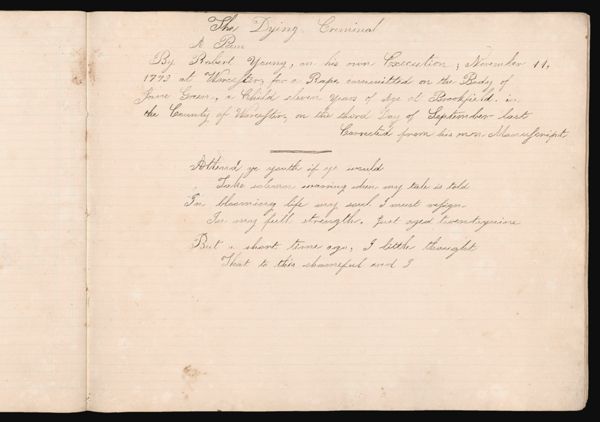 The Dying Criminal
A Poem
By Robert Young, on his own Execution, November 11,
1779 at Worcester, for a Rape committed on the Body of
Jane Green, a Child eleven years of Age at Brookfield, in
the County of Worcester, on the third Day of September last
Corrected from his own Manuscript
Attend, ye youth if ye would
Take solemn warning when my tale is told
In blooming life my soul I must resign
In my full strength, just aged twentynine
But a short time ago, I little thought
That to this shameful end I